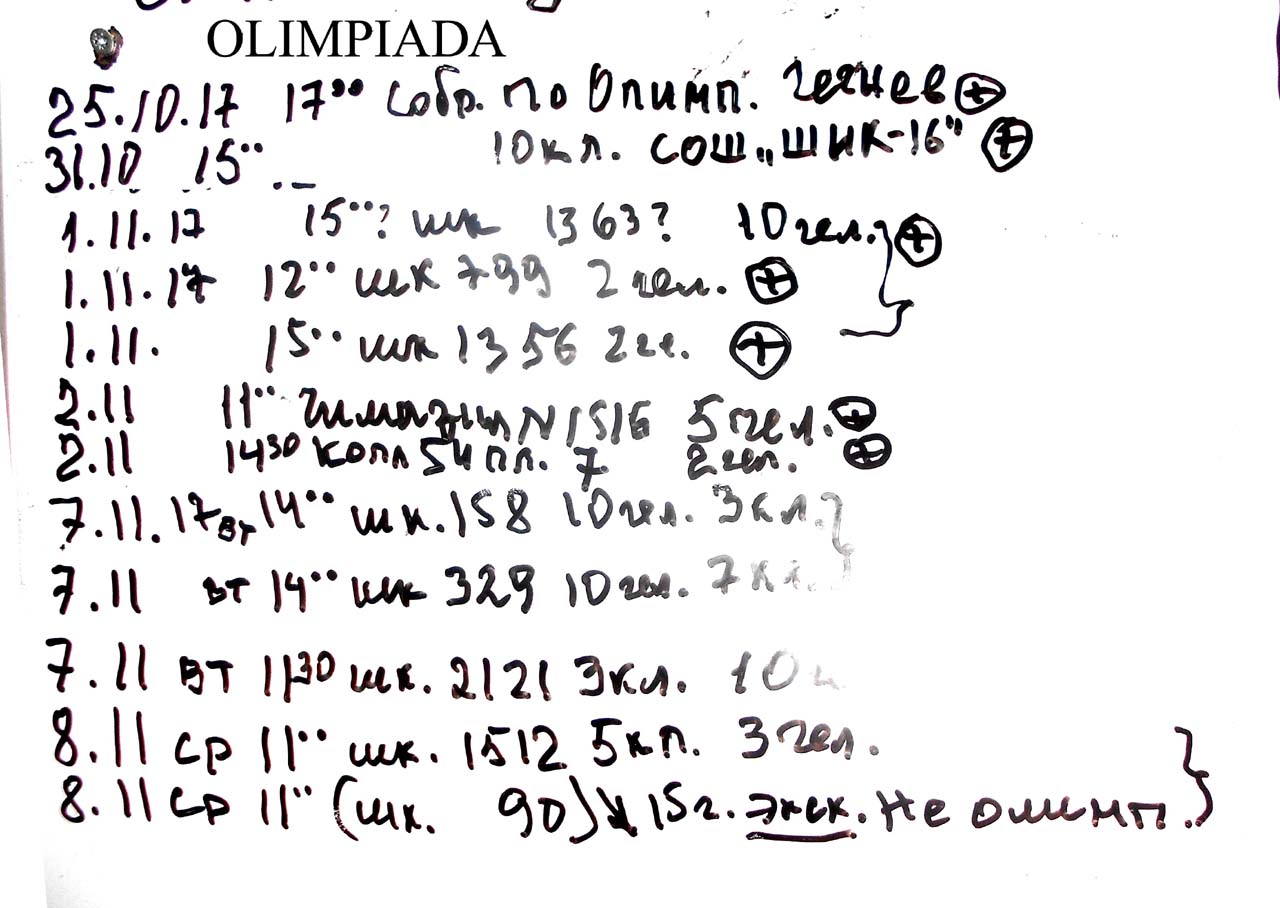 OLIMPIADA
25.10.17 17⁰⁰ Собр. по Олимп.
31.10 15⁰⁰ 10 кл. СОШ „ШИК-16"
1.11.17 15⁰⁰? шк 1363? 10 чел.
1.11.17 12⁰⁰ шк 799 2 чел.
1.11. 15⁰⁰ шк 1356 2 че.
2.11 11⁰⁰ Гимназия N 1516 5 чел.
2.11 14³⁰ 7 2 чел.
7.11.17 вт 14⁰⁰ шк. 158 10 чел. 3 кл.
7.11 вт 14⁰⁰ шк 329 10 чел. 7 кл.
7.11 вт 11³⁰ шк. 2121 3 кл. 10
8.11 ср 11⁰⁰ шк. 1512 5 кл. 3 чел.
8.11 ср 11⁰⁰ (шк. 90) 15 г. экск. Не олимп.